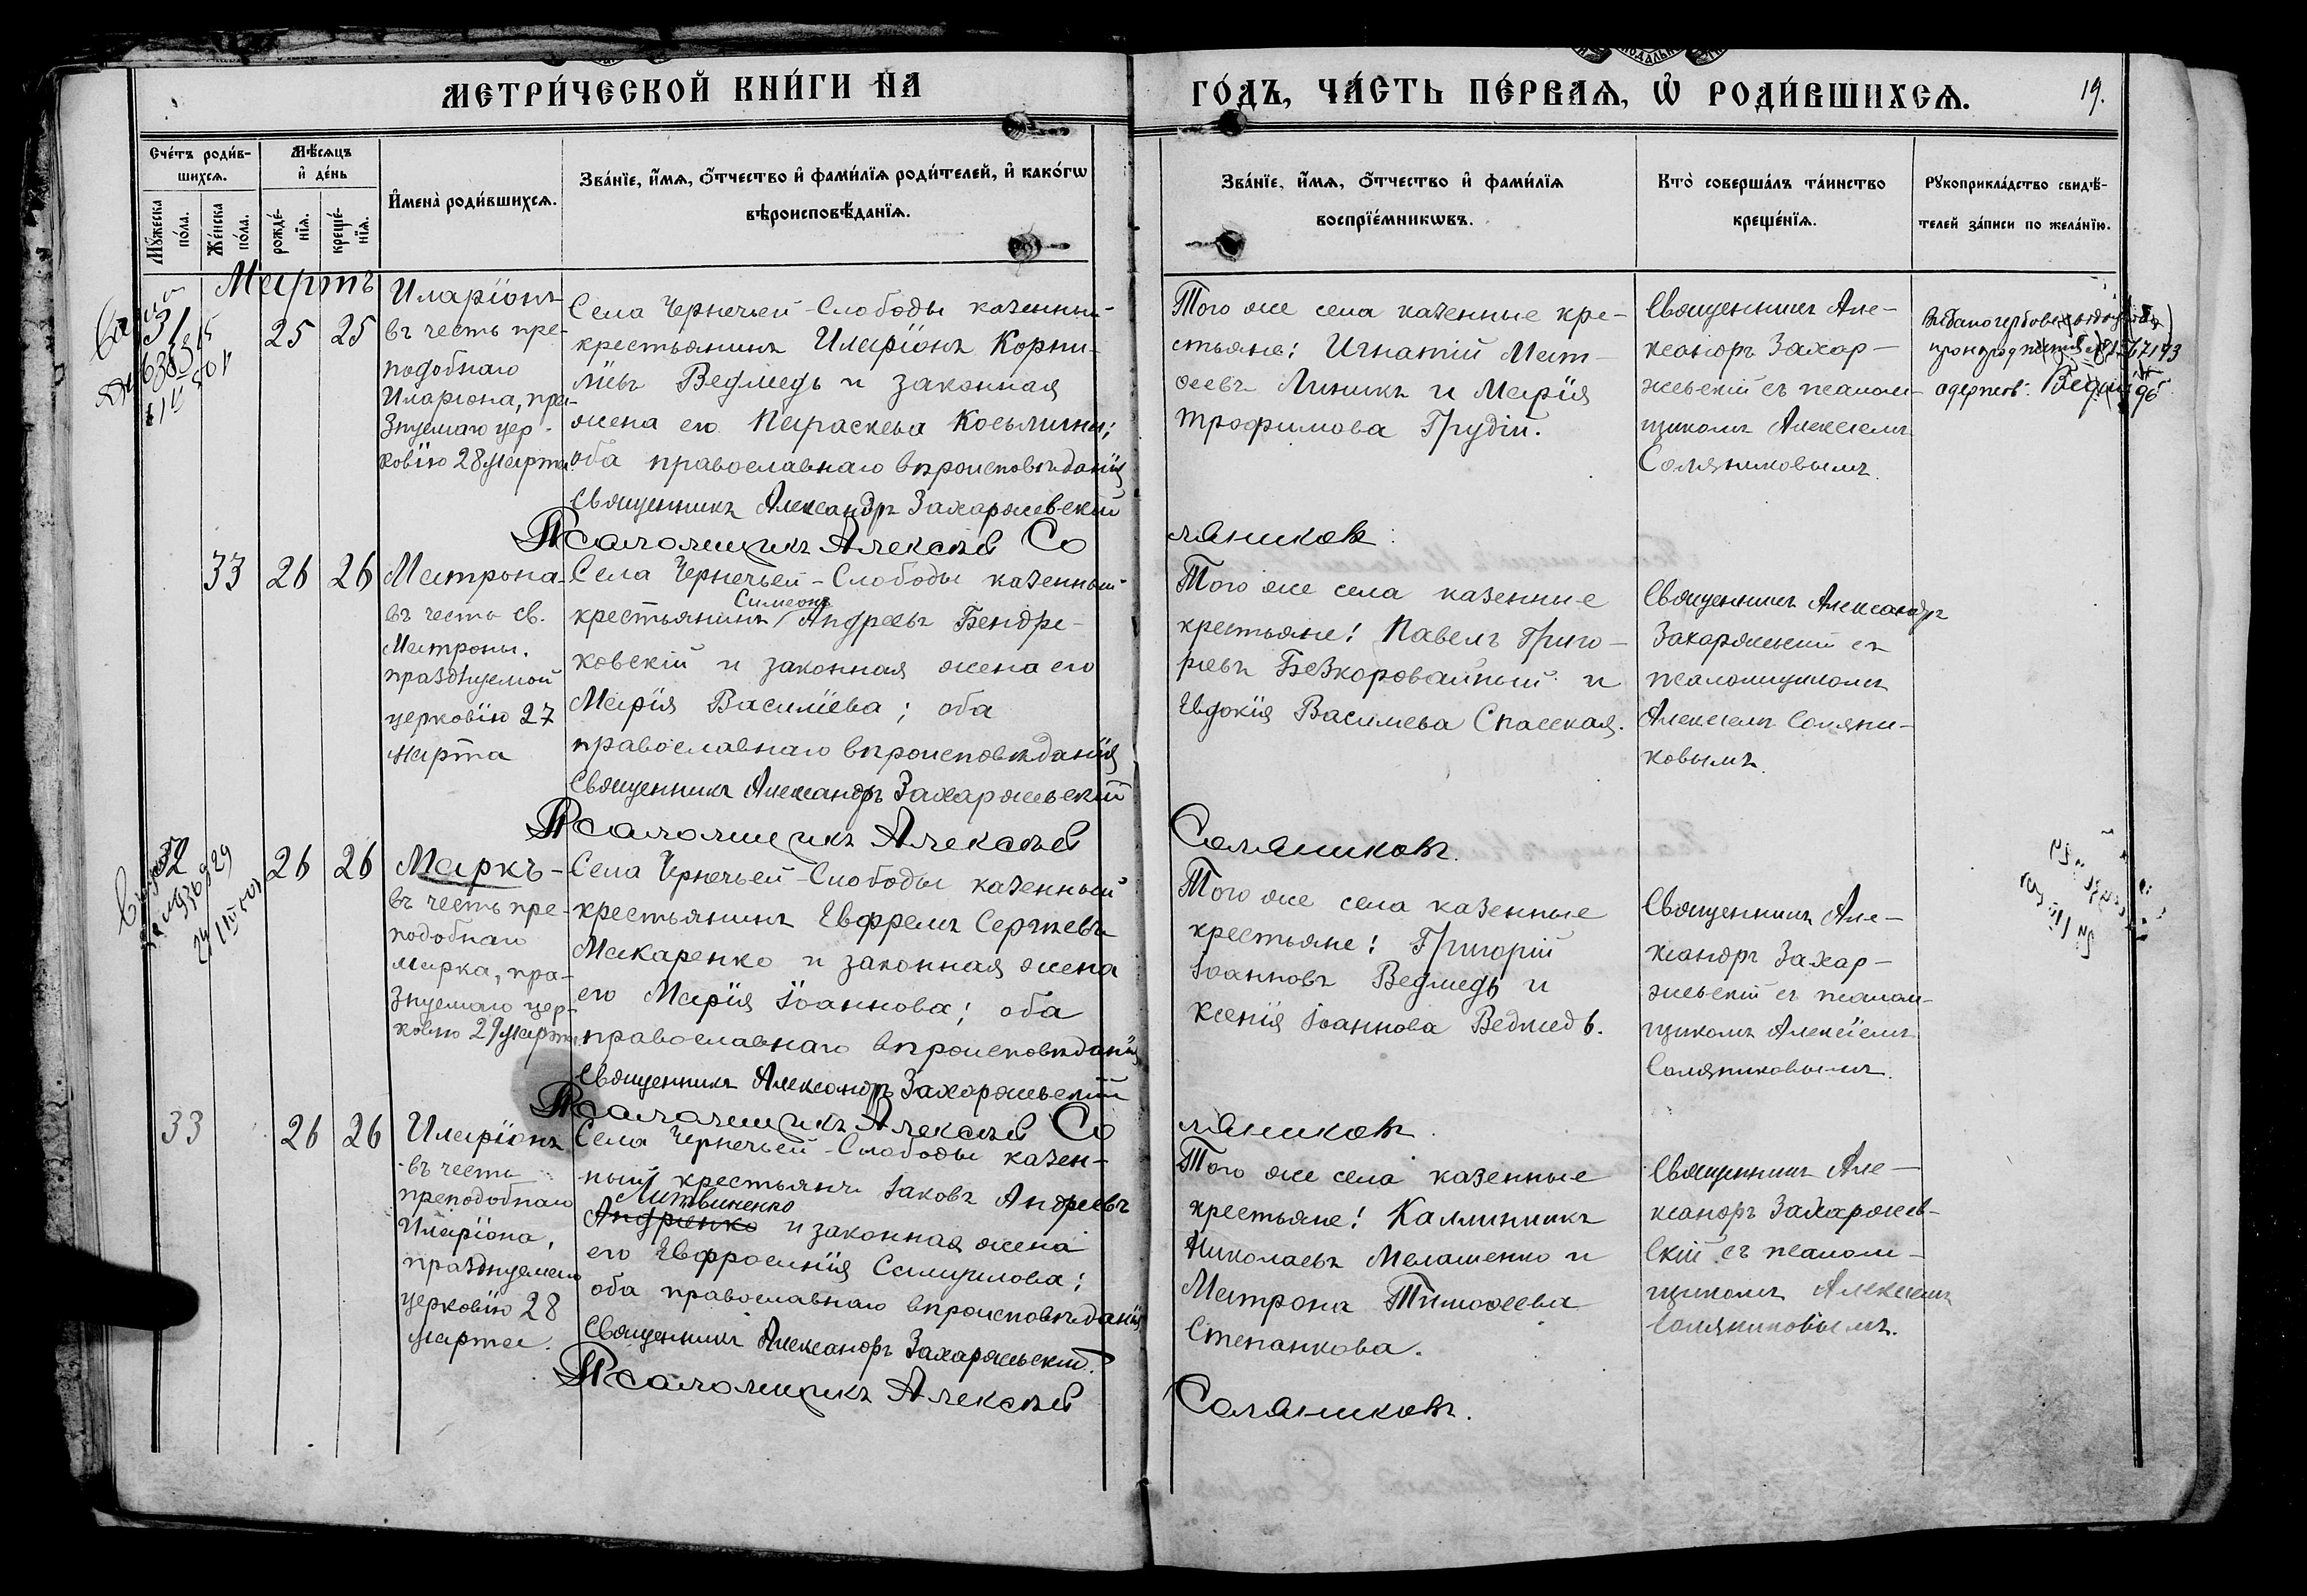 МЕТРИ́ЧЕСКОЙ КНИ́ГИ НА
ГО́ДЪ, ЧА́СТЬ ПЕ́РВАѦ, Ѡ҆ РОДИ́ВШИХСѦ.
19.
Сче́тъ роди́в-
шихсѧ.
Мѣ́сѧцъ
и҆ де́нь
Мꙋ́жеска
по́ла.
Же́нска
по́ла.
рожде́-
нїѧ.
креще́-
нїѧ.
И҆мена̀ роди́вшихсѧ.
Зва́нїе, и҆́мѧ, ѻ҆́тчество и҆ фами́лїѧ роди́телей, и҆ како́гѡ
вѣроисповѣ́данїѧ.
Зва́нїе, и҆́мѧ, ѻ҆́тчество и҆ фами́лїѧ
воспрїе́мникѡвъ.
Кто̀ соверша́лъ та́инство
креще́нїѧ.
Рꙋкоприкла́дство свидѣ́-
телей за́писи по жела́нїю.
Мартъ
31
25 25
Иларіонъ
въ честь пре-
подобнаго
Иларіона, пра-
знуемаго цер-
ковію 28 Марта
Села Чернечьей-Слободы казенный
крестьянинъ Иларіонъ Корни-
ліевъ Ведмедь и законная
жена его Параскева Косьмина;
оба православнаго вѣроисповѣданія
Священникъ Александръ Захаржевскій
Псаломщикъ Алексѣй Со
ляниковъ
Того же села казенные кре-
стьяне: Игнатій Мат-
ѳеевъ Линикъ и Марія
Трофимова Грудій.
Священникъ Але-
ксандръ Захар-
жевскій съ псалом-
щикомъ Алексіемъ
Соляниковымъ.
33 26 26
Матрона
въ честь св.
Матроны,
празднуемой
церковію 27
марта
Села Чернечьей-Слободы казенный
Симеонъ
крестьянинъ Андреевъ Бендре-
ковскій и законная жена его
Марія Василіева; оба
православнаго вѣроисповѣданія
Священникъ Александръ Захаржевскій
Псаломщикъ Алексѣй
Соляниковъ.
Того же села казенные
крестьяне: Павелъ Григо-
ріевъ Безкоровайный и
Евдокія Василіева Спасская.
Священникъ Александръ
Захаржевскій съ
псаломщикомъ
Алексіемъ Соляни-
ковымъ.
32
26 26
Маркъ-
въ честь пре-
подобнаго
Марка, пра-
знуемаго цер-
ковію 29 марта.
Села Чернечьей-Слободы казенный
крестьянинъ Евфремъ Сергіевъ
Макаренко и законная жена
его Марія Іоаннова; оба
православнаго вѣроисповѣданія
Священникъ Александръ Захаржевскій
Псаломщикъ Алексѣй Со
ляниковъ.
Того же села казенные
крестьяне: Григорій
Іоанновъ Ведмедь и
Ксенія Іоаннова Ведмедь.
Священникъ Але-
ксандръ Захар-
жевскій съ псалом-
щикомъ Алексіемъ
Соляниковымъ.
33
26 26
Иларіонъ
въ честь
преподобнаго
Иларіона,
празднуемаго
церковію 28
марта.
Села Чернечьей-Слободы казен-
ный крестьянъ Іаковъ Андреевъ
Литвиненко
Андріенко и законная жена
его Евфросинія Самуилова;
оба православнаго вѣроисповѣданія
Священникъ Александръ Захаржевскій.
Псаломщикъ Алексѣй
Соляниковъ.
Того же села казенные
крестьяне: Каллиникъ
Николаевъ Мелашенко и
Матрона Тимоѳеева
Степанкова.
Священникъ Але-
ксандръ Захаржев-
скій съ псалом-
щикомъ Алексіемъ
Соляниковымъ.